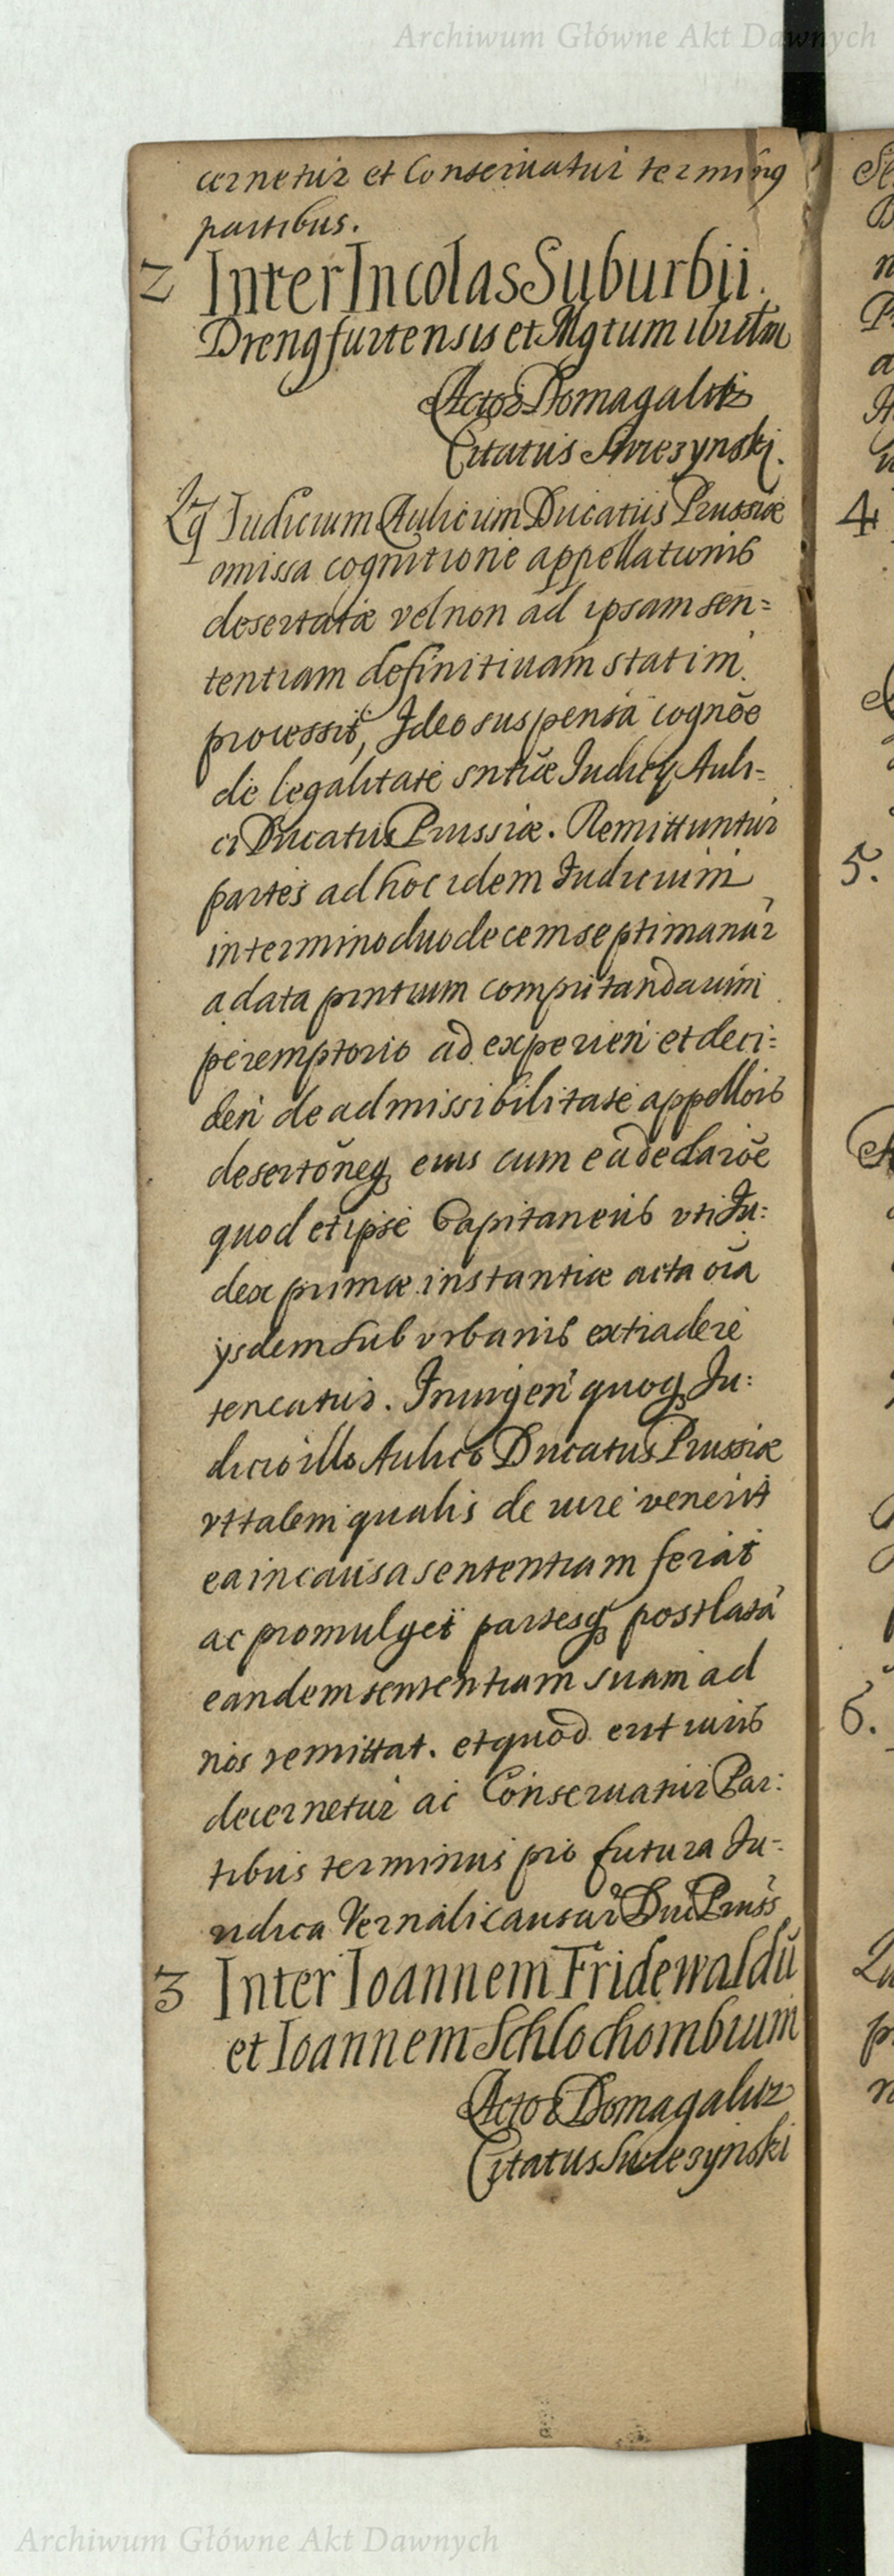 Archiwum Główne Akt Dawnych
cernetur et Conseruatur terming
partibus.
2 Inter Incolas Suburbii
Drengfurtensis et Mgtum ibidm
Actor Domagalicz
Citatus Swieszynski.
Qq Judicium Aulicum Ducatus Prussiæ
omissa cognitione appellationis
desertatæ vel non ad ipsam sen=
tentiam definitiuam statim
processit, Ideo suspensa cognõe
de legalitate sntiæ Iudicy Auli=
ci Ducatus Prussiæ. Remittuntur
partes ad hoc idem Iudicium
in termino duodecem septimanar
a data pntium computandarum
peremptorio ad experien et deci=
den de admissibilitate appellois
desertõneq eius cum ea declarõe
quod et ipse Capitaneus vti Iu=
dex primæ instantiæ acta oĩa
ysdem Suburbanis extradere
teneatur. Iniungen quoq Iu=
dicio illo Aulico Ducatus Prussiæ
vt talem qualis de iure venerit
ea in causa sententiam ferat
ac promulget partesq post lata
eandem sententiam suam ad
nos remittat. et quod erit iuris
decernetur ac Conseruatur Par=
tibus terminus pro futura Iu=
ridica Vernali causar Duc Pruss
3 Inter Ioannem Fridewaldũ
et Ioannem Schlochombium
Actor Domagalicz
Citatus Swieszynski
4
5.
6.
Archiwum Główne Akt Dawnych